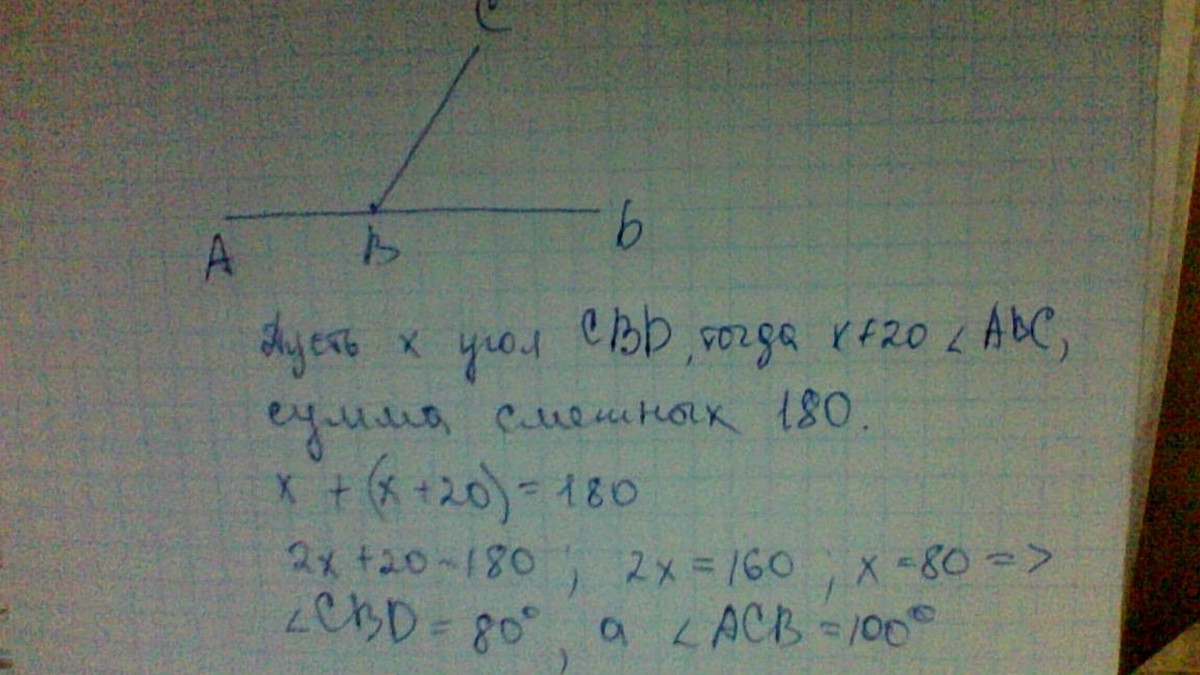 C
A B b
Пусть x угол CBD, тогда x+20 ∠ ABC,
сумма смежных 180.
x + (x+20) = 180
2x+20=180 ; 2x=160 ; x=80 =>
∠CBD = 80°, а ∠ACB = 100°